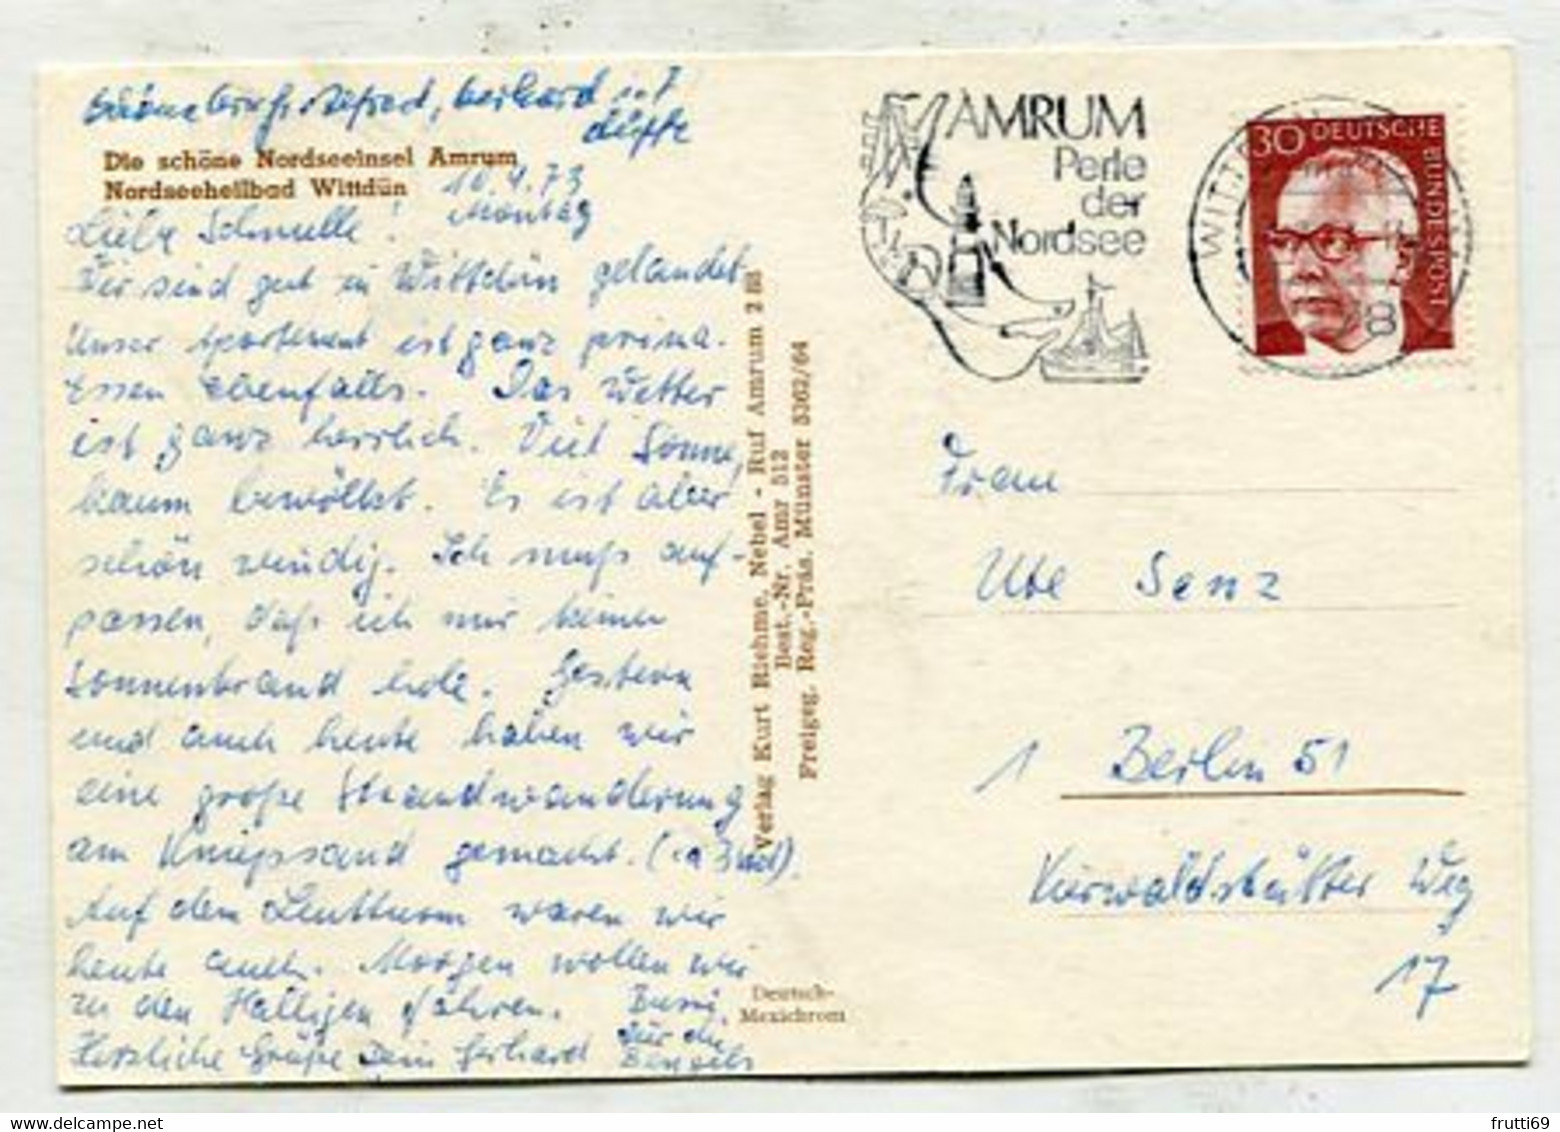 Gerhard
Die schöne Nordseeinsel Amrum
Nordseeheilbad Wittdün
10.4.73
Montag
Liebe Schnulle!
Wir sind gut in Wittdün gelandet
Unser Apartement ist ganz prima.
Essen ebenfalls. Das Wetter
ist ganz herrlich. Viel Sonne,
kaum bewölkt. Es ist aber
schön windig. Ich muß auf-
passen, daß ich mir keinen
Sonnenbrand hole. Gestern
und auch heute haben wir
eine große Strandwanderung
am Kniepsand gemacht.
Auf dem Leutturm waren wir
heute auch. Morgen wollen wir
zu den Halligen fahren. Bussi,
Herzliche Grüße Dein Gerhard
für die
Bengels
Verlag Kurt Riehme, Nebel - Ruf Amrum 2 88
Best.-Nr. Amr 512
Freigeg. Reg.-Präs. Münster 5362/64
Deutsch-
Mexichrom
AMRUM
Perle
der
Nordsee
WITTDÜN
30 DEUTSCHE
BUNDESPOST
Frau
Ute Senz
1 Berlin 51
Kurwaldstätter Weg
17
frutti69